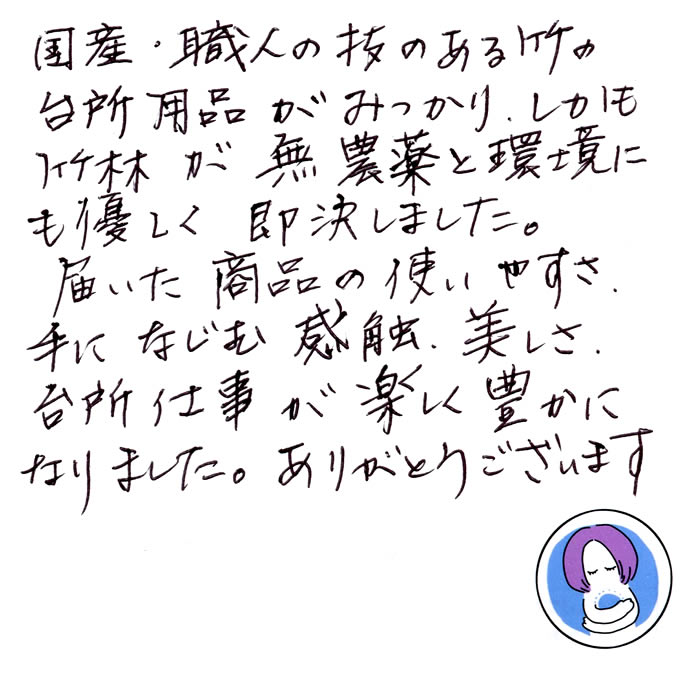 国産・職人の技のある竹の
台所用品がみつかり、しかも
竹林が無農薬と環境に
も優しく即決しました。
届いた商品の使いやすさ、
手になじむ感触、美しさ、
台所仕事が楽しく豊かに
なりました。ありがとうございます